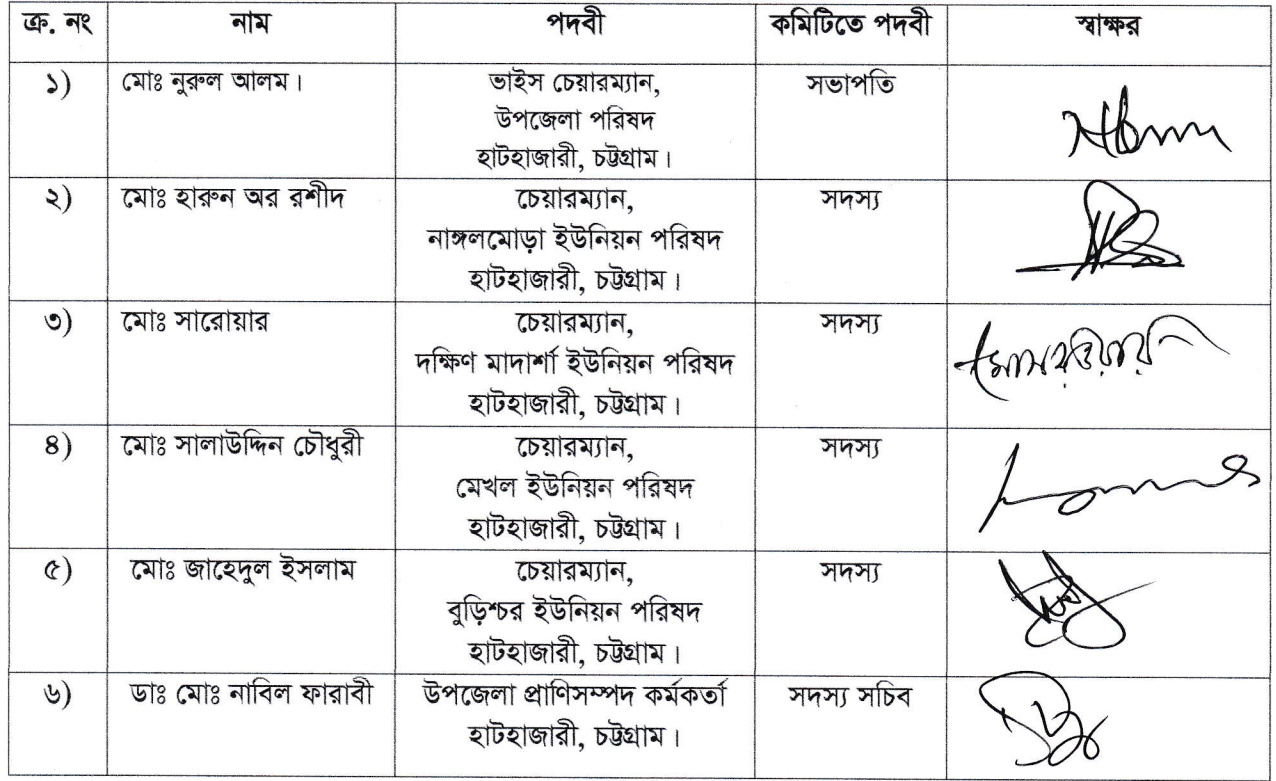 ক্র. নং নাম পদবী কমিটিতে পদবী স্বাক্ষর
১) মোঃ নুরুল আলম। ভাইস চেয়ারম্যান, সভাপতি
উপজেলা পরিষদ
হাটহাজারী, চট্টগ্রাম।
২) মোঃ হারুন অর রশীদ চেয়ারম্যান, সদস্য
নাঙ্গলমোড়া ইউনিয়ন পরিষদ
হাটহাজারী, চট্টগ্রাম।
৩) মোঃ সারোয়ার চেয়ারম্যান, সদস্য
দক্ষিণ মাদার্শা ইউনিয়ন পরিষদ
হাটহাজারী, চট্টগ্রাম।
৪) মোঃ সালাউদ্দিন চৌধুরী চেয়ারম্যান, সদস্য
মেখল ইউনিয়ন পরিষদ
হাটহাজারী, চট্টগ্রাম।
৫) মোঃ জাহেদুল ইসলাম চেয়ারম্যান, সদস্য
বুড়িশ্চর ইউনিয়ন পরিষদ
হাটহাজারী, চট্টগ্রাম।
৬) ডাঃ মোঃ নাবিল ফারাবী উপজেলা প্রাণিসম্পদ কর্মকর্তা সদস্য সচিব
হাটহাজারী, চট্টগ্রাম।